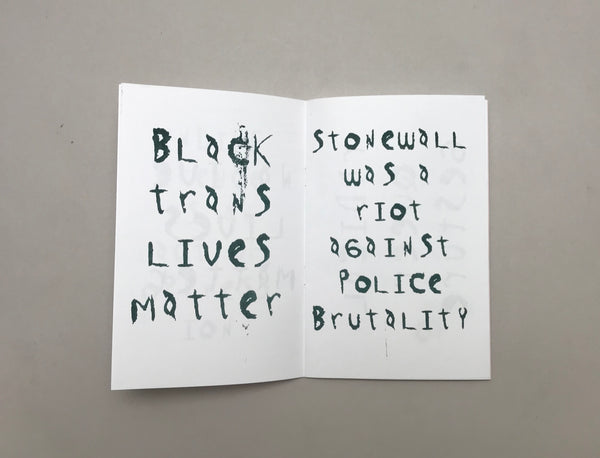 BLacK
tranS
LIVES
matter
StonEwaLL
waS a
rIot
aGaINSt
PoLICE
BrutaLIty